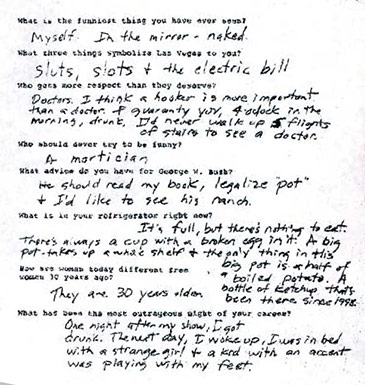 What is the funniest thing you have ever seen?
Myself. In the mirror - naked.
What three things symbolize Las Vegas to you?
Sluts, slots + the electric bill
Who gets more respect than they deserve?
Doctors. I think a hooker is more important
than a doctor. I guaranty you, 4 oclock in the
morning, drunk, I'd never walk up 5 flights
of stairs to see a doctor.
Who should never try to be funny?
A mortician
What advice do you have for George W. Bush?
He should read my book, legalize "pot"
+ I'd like to see his ranch.
What is in your refrigerator right now?
It's full, but there's nothing to eat.
There's always a cup with a broken egg in it. A big
pot takes up a whole shelf + the only thing in this
big pot is a half of
a boiled potato. A
bottle of ketchup that's
been there since 1998.
How are women today different from
women 30 years ago?
They are 30 years older.
What has been the most outrageous night of your career?
One night after my show, I got
drunk. The next day, I woke up, I was in bed
with a strange girl + a kid with an accent
was playing with my feet.